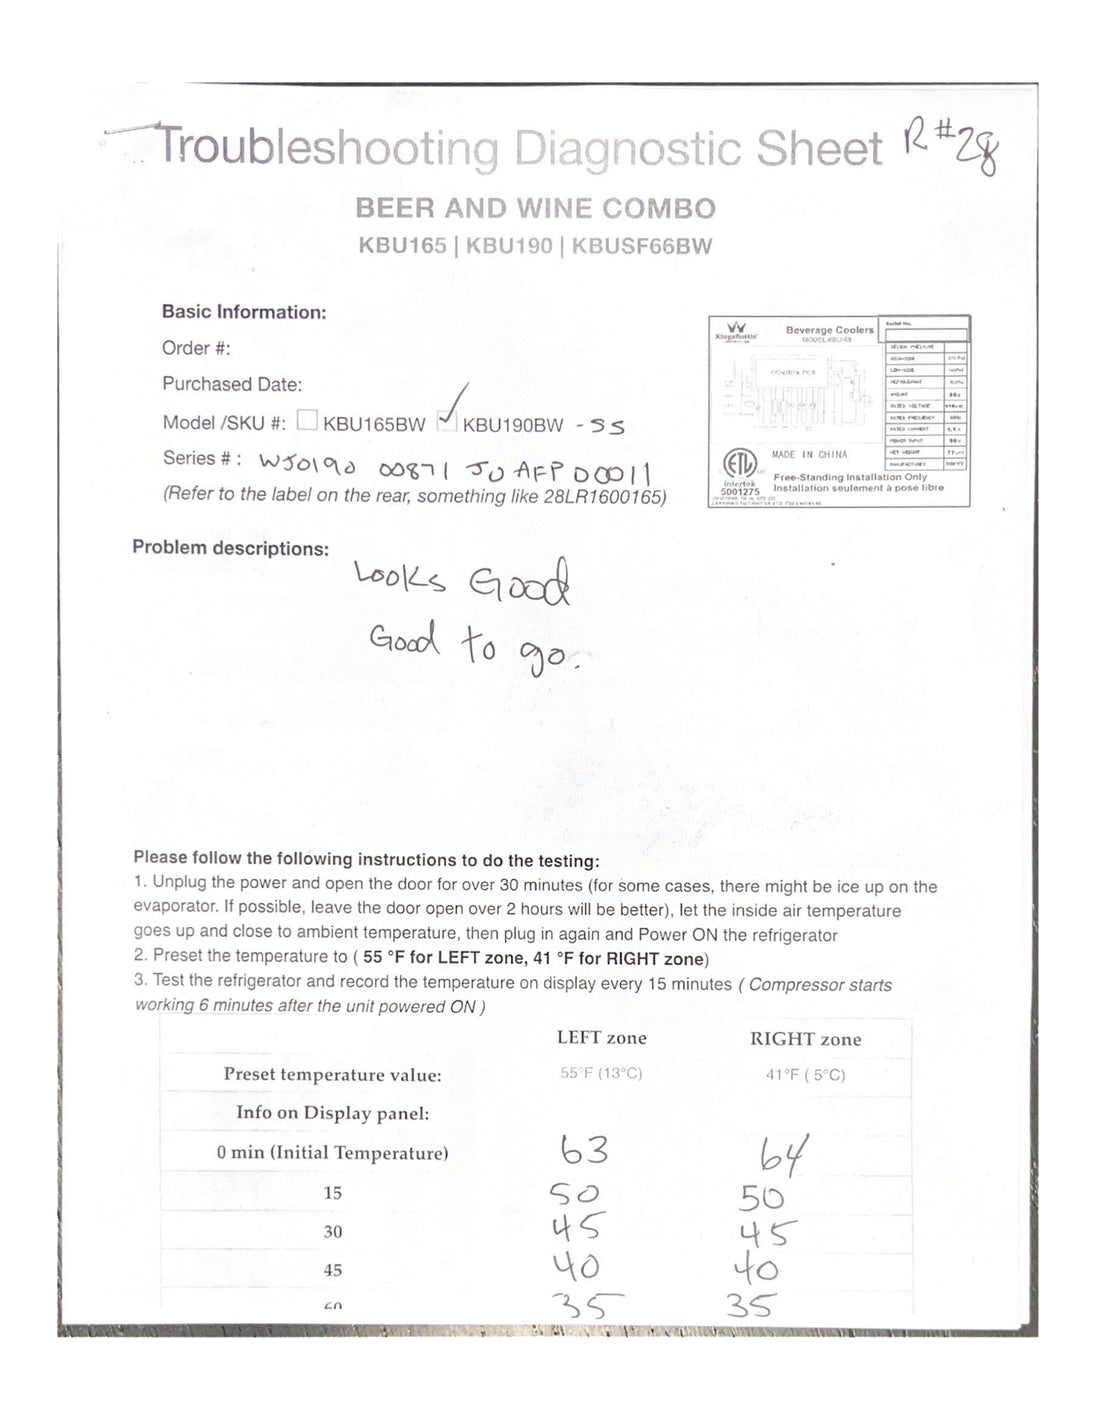 Troubleshooting Diagnostic Sheet R#28
BEER AND WINE COMBO
KBU165 | KBU190 | KBUSF66BW
Basic Information:
Order #:
Purchased Date:
Model /SKU #: KBU165BW KBU190BW - SS
Series # : WJ0190 00871 JO AFP 00011
(Refer to the label on the rear, something like 28LR1600165)
KingsBottle
Beverage Coolers
MODEL:KBU-68
Serial No.
CONTROL PCB
MADE IN CHINA
Intertek
5001275
Free-Standing Installation Only
Installation seulement à pose libre
Problem descriptions:
Looks Good
Good to go.
Please follow the following instructions to do the testing:
1. Unplug the power and open the door for over 30 minutes (for some cases, there might be ice up on the
evaporator. If possible, leave the door open over 2 hours will be better), let the inside air temperature
goes up and close to ambient temperature, then plug in again and Power ON the refrigerator
2. Preset the temperature to ( 55 °F for LEFT zone, 41 °F for RIGHT zone)
3. Test the refrigerator and record the temperature on display every 15 minutes ( Compressor starts
working 6 minutes after the unit powered ON )
LEFT zone RIGHT zone
Preset temperature value: 55°F (13°C) 41°F ( 5°C)
Info on Display panel:
0 min (Initial Temperature) 63 64
15 50 50
30 45 45
45 40 40
60 35 35